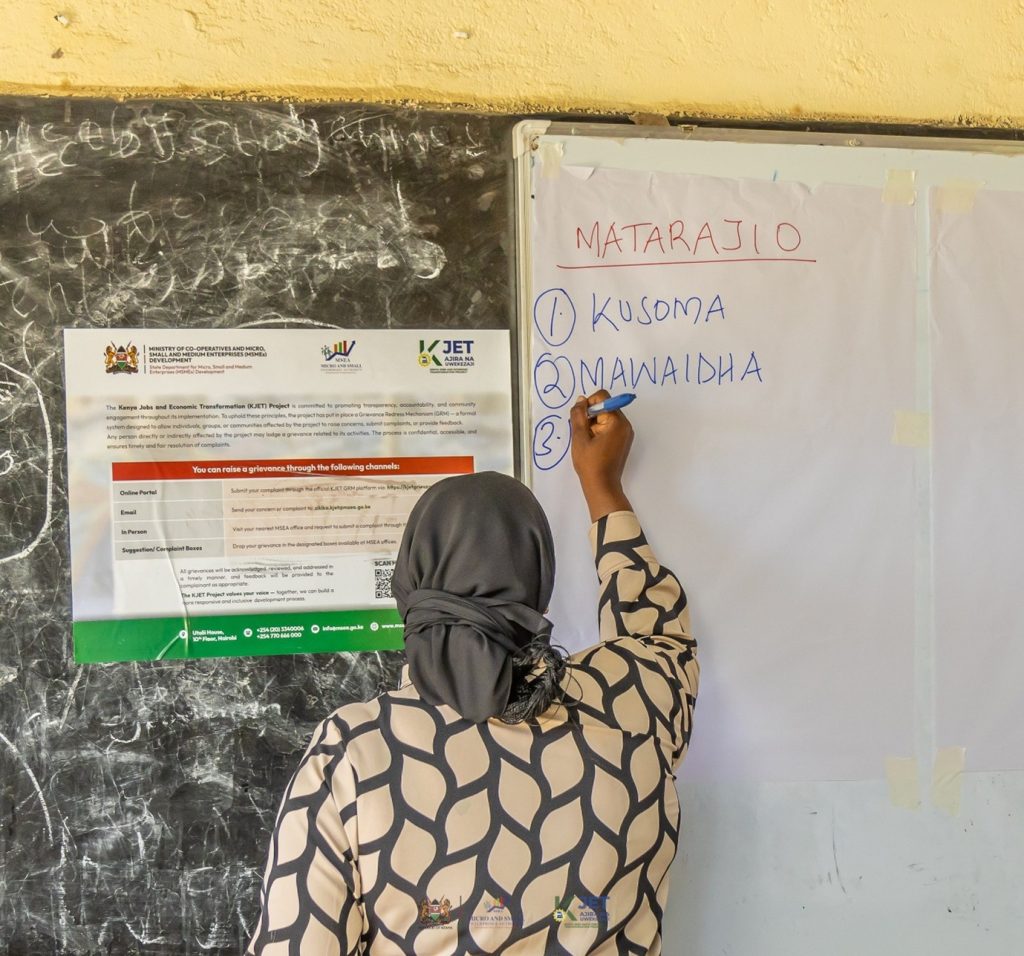 MINISTRY OF CO-OPERATIVES AND MICRO,
SMALL AND MEDIUM ENTERPRISES (MSMEs)
DEVELOPMENT
State Department for Micro, Small and Medium
Enterprises (MSMEs) Development
MSEA
MICRO AND SMALL
KJET
AJIRA NA
UWEKEZAJI
The Kenya Jobs and Economic Transformation (KJET) Project is committed to promoting transparency, accountability, and community
engagement throughout its implementation. To uphold these principles, the project has put in place a Grievance Redress Mechanism (GRM) — a formal
system designed to allow individuals, groups, or communities affected by the project to raise concerns, submit complaints, or provide feedback.
Any person directly or indirectly affected by the project may lodge a grievance related to its activities. The process is confidential, accessible, and
ensures timely and fair resolution of complaints.
You can raise a grievance through the following channels:
Online Portal Submit your complaint through the official KJET GRM platform via:
Email Send your concern or complaint to:
In Person Visit your nearest MSEA office and request to submit a complaint through
Suggestion/ Complaint Boxes Drop your grievance in the designated boxes available at MSEA offices.
All grievances will be acknowledged, reviewed, and addressed in
a timely manner, and feedback will be provided to the
complainant as appropriate.
The KJET Project values your voice — together, we can build a
more responsive and inclusive development process.
SCAN
Utalii House,
10th Floor, Nairobi
+254 (20) 3340006
+254 770 666 000
info@msea.go.ke
MATARAJIO
1. KUSOMA
2. MAWAIDHA
3.
MICRO AND SMALL
KJET
AJIRA NA
UWEKEZAJI